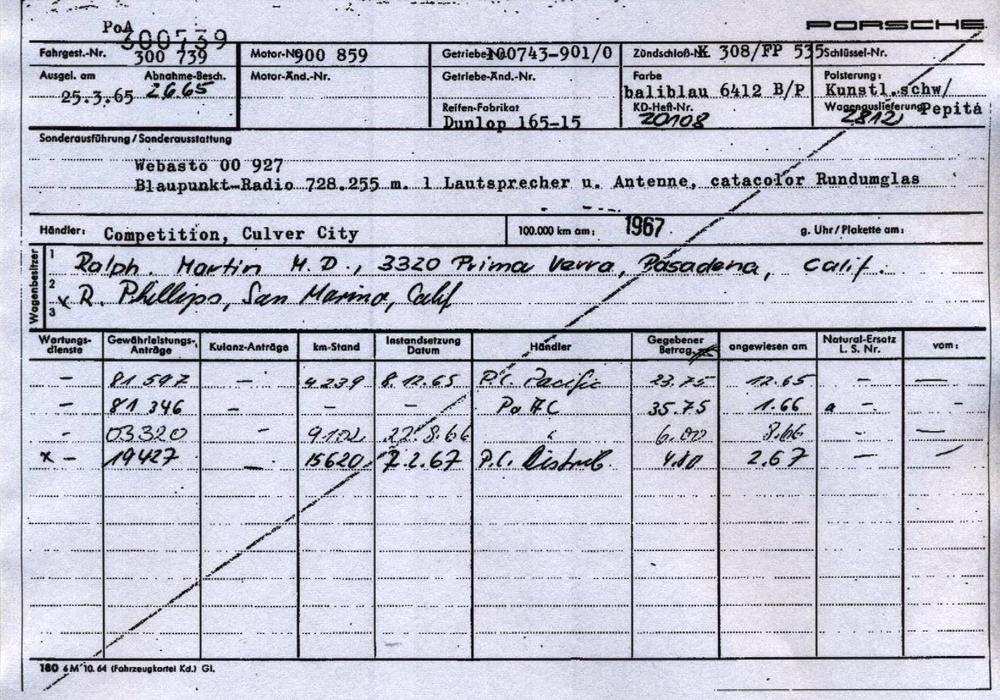 PoA
300539
PORSCHE
Fahrgest.-Nr. 300 739 Motor-Nr. 900 859 Getriebe-Nr. 100743-901/0 Zündschloß-Nr. K 308/FP 535 Schlüssel-Nr.
Ausgel. am Abnahme-Besch. Motor-Änd.-Nr. Getriebe-Änd.-Nr. Farbe Polsterung:
25.3.65 2665 baliblau 6412 B/P Kunstl.schw/
Reifen-Fabrikat KD-Heft-Nr. Wagenauslieferung Pepita
Dunlop 165-15 20108 2812
Sonderausführung/Sonderausstattung
Webasto 00 927
Blaupunkt-Radio 728.255 m. 1 Lautsprecher u. Antenne, catacolor Rundumglas
Händler: Competition, Culver City 100.000 km am: 1967 g. Uhr/Plakette am:
Wagenbesitzer
1 Ralph. Martin M.D., 3320 Prima Verra, Pasadena, Calif.
2 x R. Phillips, San Marino, Calif
3
Wartungs-dienste Gewährleistungs-Anträge Kulanz-Anträge km-Stand Instandsetzung Datum Händler Gegebener Betrag angewiesen am Natural-Ersatz L. S. Nr. vom:
– 81 597 – 4239 8.12.65 P.C. Pacific 23.75 12.65 – —
– 81 346 – – – Po AC 35.75 1.66 – –
– 03320 – 9102 22.8.66 " 6.00 8.66 – —
x – 19427 – 15620 7.2.67 P.C. Distrib. 4.80 2.67 – –
180 6 M 10. 64 (Fahrzeugkartei Kd.) Gl.